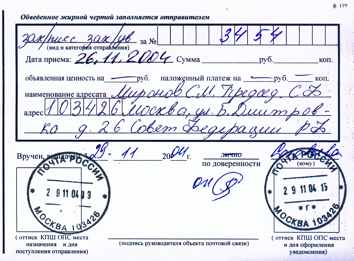 ф. 119
Обведенное жирной чертой заполняется отправителем
зак/писс зак/ув. за № 3454
(вид и категория отправления)
Дата приема: 26.11.2004 Сумма руб. коп.
объявленная ценность на руб. наложенный платеж на руб. коп.
наименование адресата Миронов С.М. Председ С.Ф.
адрес 103426 Москва, ул. Б. Дмитров-
ка д. 26 Совет Федерации РФ
Вручен, 29-11 2004г. лично
по доверенности (кому)
ПОЧТА РОССИИ
29 11 04
МОСКВА 103426
ПОЧТА РОССИИ
29 11 04 15
* Г *
МОСКВА 103426
( оттиск КПШ ОПС места
назначения и дня
поступления отправления)
(подпись руководителя объекта почтовой связи)
( оттиск КПШ ОПС места
и дня оформления
уведомления)